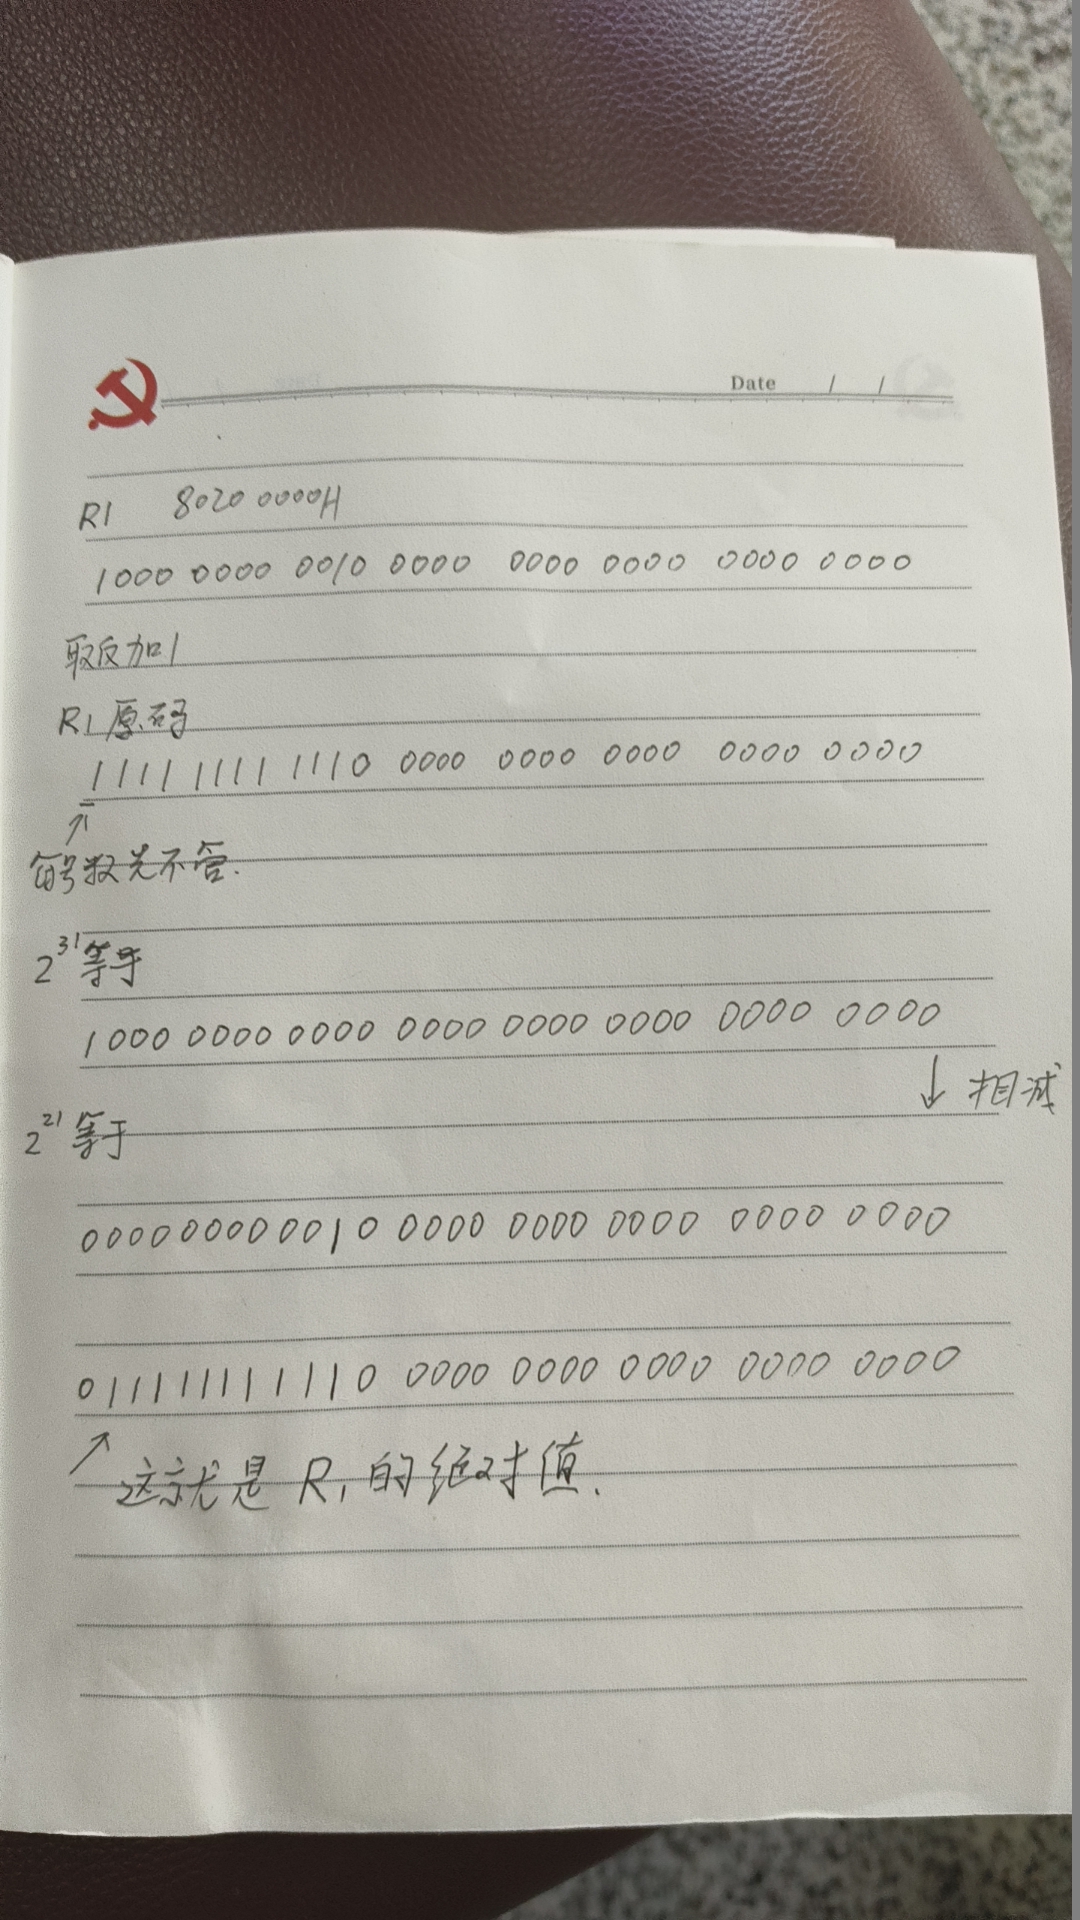 Date / /
R1 8020 0000H
1000 0000 0010 0000 0000 0000 0000 0000
取反加1
R1原码
1111 1111 1110 0000 0000 0000 0000 0000
↑
符号数先不管.
2^31等于
1000 0000 0000 0000 0000 0000 0000 0000
↓ 相减
2^21等于
000000000010 0000 0000 0000 0000 0000
011111111110 0000 0000 0000 0000 0000
↗ 这就是 R1 的绝对值.